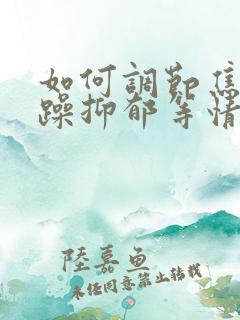 如何調節焦
躁抑郁等情
陸嘉魚
未经同意禁止转载